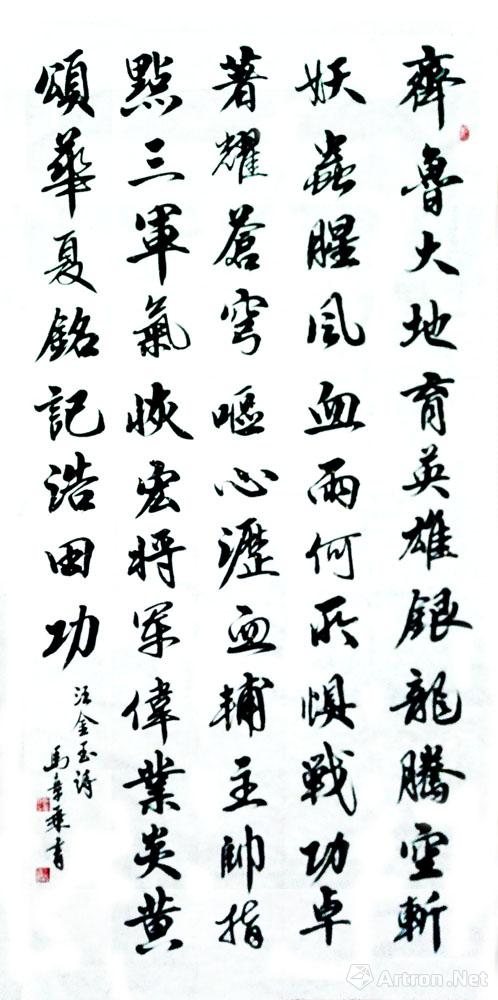 齊魯大地育英雄銀龍騰空斬
妖蟲腥風血雨何所懼戰功卓
著耀蒼穹嘔心瀝血輔主帥指
點三軍氣恢宏將軍偉業炎黃
頌華夏銘記浩田功
汪金玉詩
馬書
Artron.Net